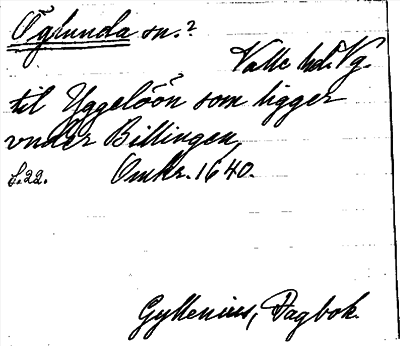 Öglunda sn.²
Valle hd. Vg.
til Yggelöön som ligger
vnder Billingen,
s. 22. Omkr. 1640.
Gyllenius, Dagbok.